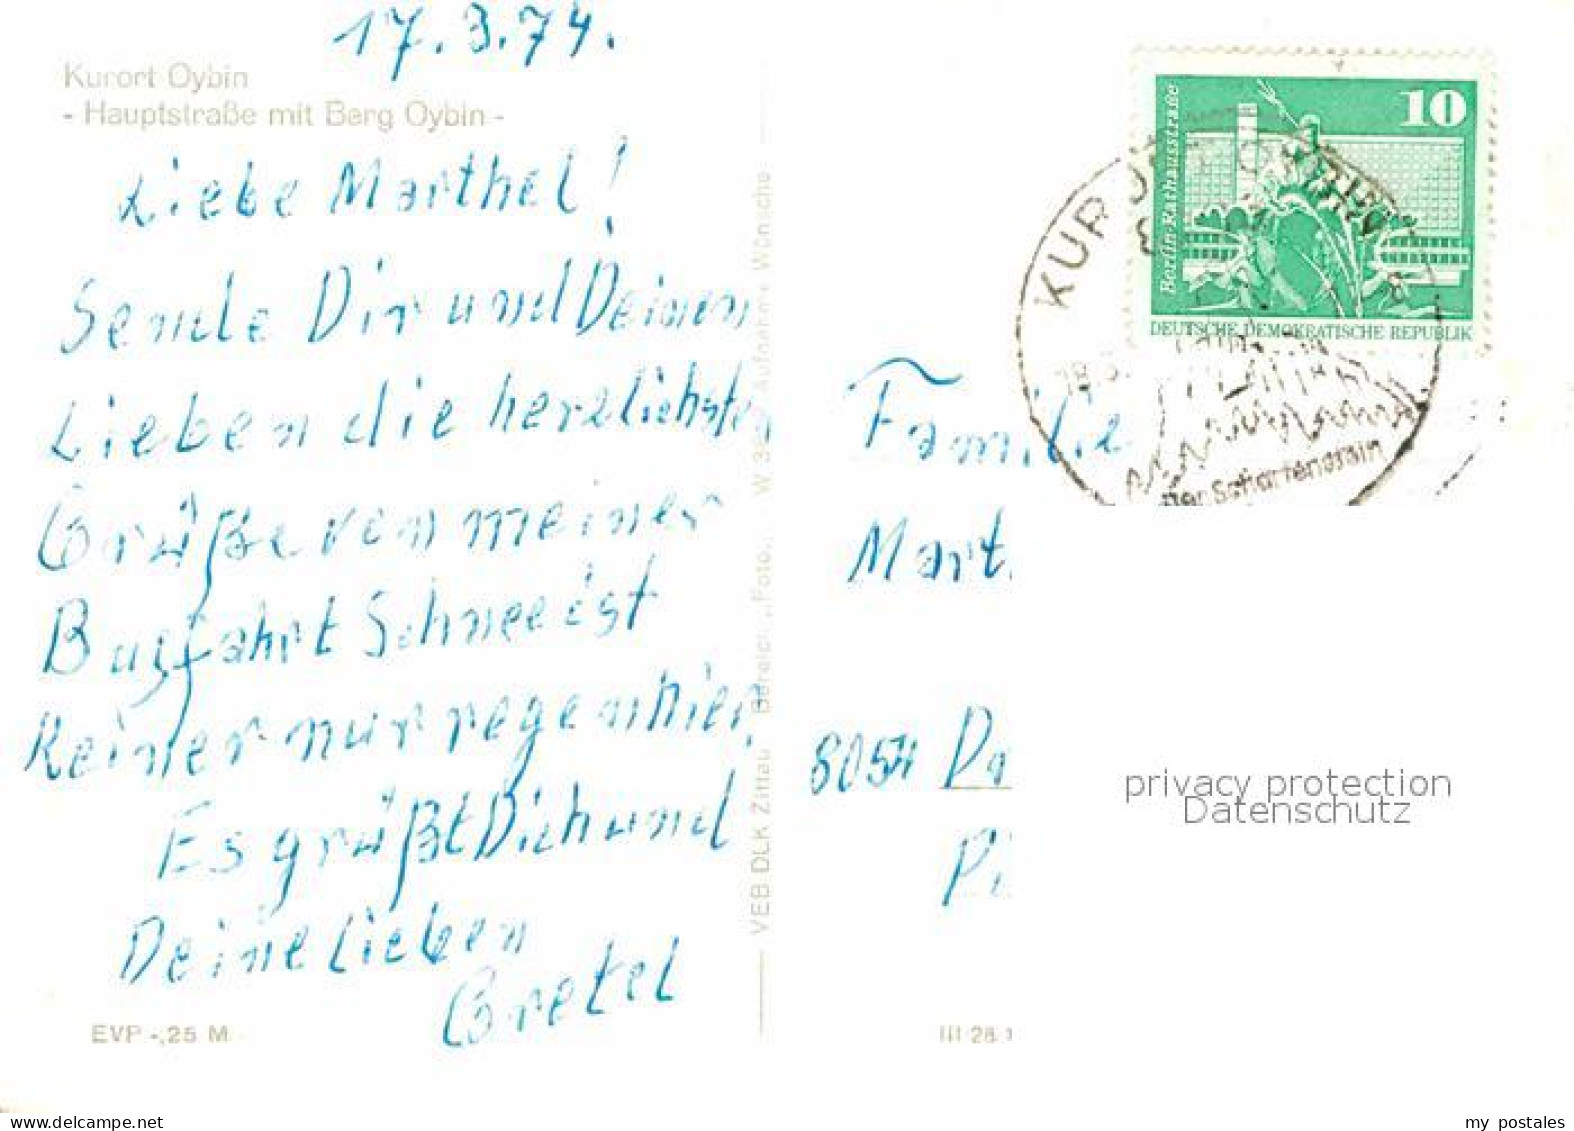 17.3.74.
Kurort Oybin
- Hauptstraße mit Berg Oybin -
Liebe Marthel!
Sende Dir und Deinen
Lieben die herzlichsten
Grüße von meiner
Busfahrt Schnee ist
Keiner nur regen hier,
Es grüßt Dich und
Deine Lieben
Gretel
EVP -,25 M
VEB DLK Zittau Bereich „Foto„ W 39 Aufnahme Wünsche
10
Berlin-Rathausstraße
DEUTSCHE DEMOKRATISCHE REPUBLIK
KURORT OYBIN
18.3.
der Scharfenstein
Familie
Mart
8054
III 28
privacy protection
Datenschutz
my postales
www.delcampe.net